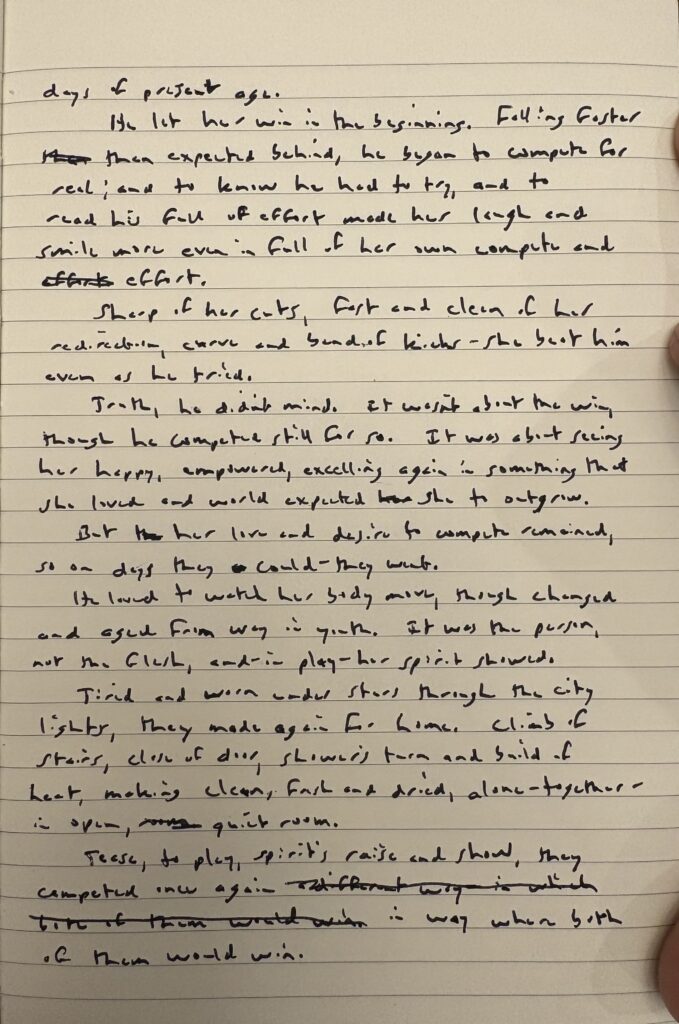 days of present age.
He let her win in the beginning. Falling faster
than then expected behind, he began to compute for
real; and to know he had to try, and to
read his full of effort made her laugh and
smile more even in full of her own compute and
efforts effort.
Sharp of her cuts, fast and clean of her
redirection, curve and bend of kicks - she beat him
even as he tried.
Truth, he didn't mind. It wasn't about the win,
though he competed still for so. It was about seeing
her happy, empowered, excelling again in something that
she loved and world expected her she to outgrow.
But her love and desire to compute remained,
so on days they could - they went.
He loved to watch her body move, though changed
and aged from way in youth. It was the person,
not the flesh, and - in play - her spirit showed.
Tired and worn under stars through the city
lights, they made again for home. Climb of
stairs, close of door, shower's turn and build of
heat, making clean, fresh and dried, alone - together -
in open, quiet room.
Tease, to play, spirit's raise and show, they
competed once again a different way in which
both of them would win in way where both
of them would win.